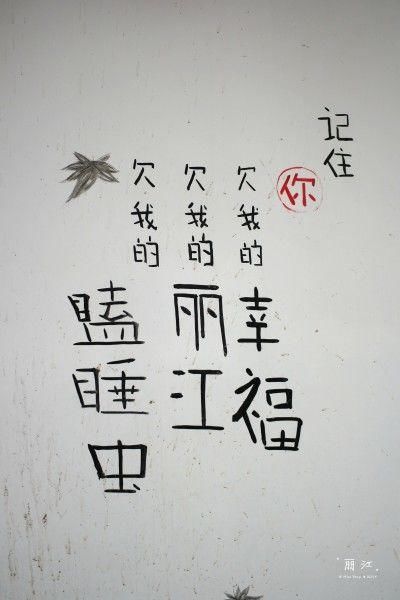 记住
你
欠我的幸福
欠我的丽江
欠我的瞌睡虫
丽江